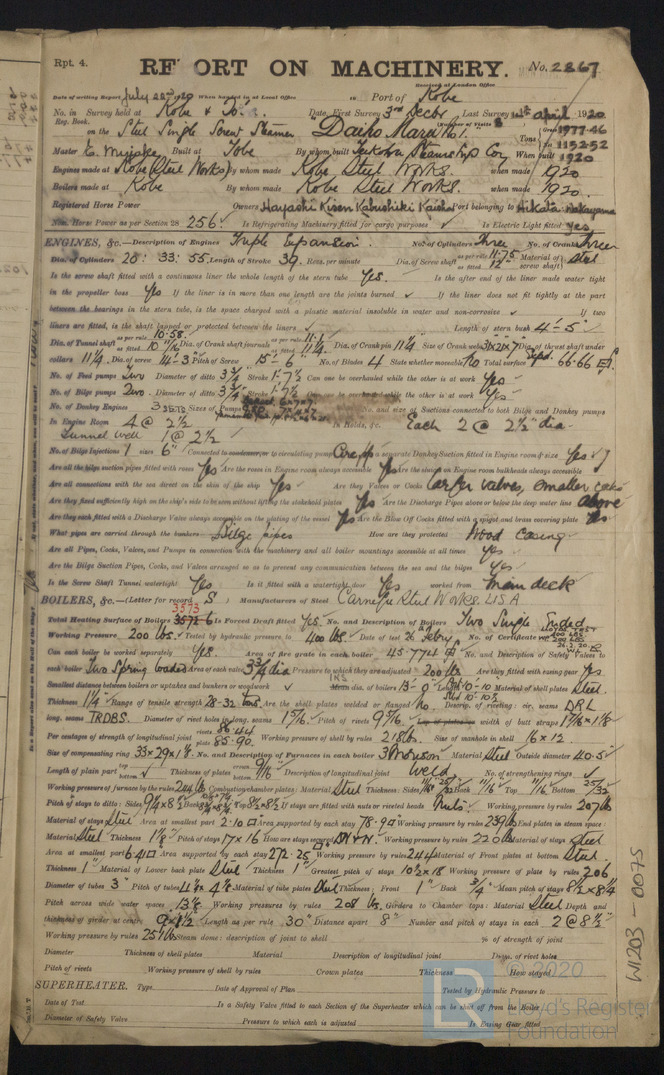 Rpt. 4.
REPORT ON MACHINERY.
No. 2267
Received at London Office
Date of writing Report July 22nd 1920 When handed in at Local Office Port of Kobe
No. in Survey held at Kobe & Date, First Survey 3rd Decbr Last Survey 1st April 1920
Reg. Book. (Number of Visits
on the Steel Single Screw Steamer Daiho Maru No 1. Tons Gross 1977.46 Net 1152.52
Master Built at Tobe By whom built When built 1920
Engines made at Kobe (Steel Works) By whom made Kobe Steel Works. when made 1920
Boilers made at Kobe By whom made Kobe Steel Works. when made 1920.
Registered Horse Power Owners Hayashi Kisen Kabushiki Kaisha Port belonging to Hikata Wakayama
Nom. Horse Power as per Section 28 256. Is Refrigerating Machinery fitted for cargo purposes Is Electric Light fitted Yes
ENGINES, &c.—Description of Engines Triple Expansion. No. of Cylinders Three No. of Cranks Three
Dia. of Cylinders 20: 33: 55. Length of Stroke 39. Revs. per minute Dia. of Screw shaft as per rule 11.75 as fitted 12" Material of screw shaft Steel
Is the screw shaft fitted with a continuous liner the whole length of the stern tube Yes. Is the after end of the liner made water tight
in the propeller boss Yes If the liner is in more than one length are the joints burned If the liner does not fit tightly at the part
between the bearings in the stern tube, is the space charged with a plastic material insoluble in water and non-corrosive If two
liners are fitted, is the shaft lapped or protected between the liners Length of stern bush 4'-5"
Dia. of Tunnel shaft as per rule 10.58 Dia. of Crank shaft journals as per rule 11.1 as fitted 11 1/4 Dia. of Crank pin 11 1/4 Size of Crank webs Dia. of thrust shaft under
collars 11 1/4 Dia. of screw 14'-3" Pitch of Screw 15'-6" No. of Blades 4 State whether moveable No Total surface 66.66
No. of Feed pumps Two Diameter of ditto 3 3/4 Stroke 1'-7 1/2 Can one be overhauled while the other is at work Yes
No. of Bilge pumps Two. Diameter of ditto 3 3/4 Stroke 1'-7 1/2 the other is at work Yes
No. of Donkey Engines 3 Sizes of Pumps No. and size of Suctions connected to both Bilge and Donkey pumps
In Engine Room 4 @ 2 1/2 In Holds, &c. Each 2 @ 2 1/2" dia.
Tunnel well 1 @ 2 1/2
No. of Bilge Injections 1 sizes 6" Connected to condenser, or to circulating pump a separate Donkey Suction fitted in Engine room & size Yes
Are all the bilge suction pipes fitted with roses Yes Are the roses in Engine room always accessible Yes Are the sluices on Engine room bulkheads always accessible
Are all connections with the sea direct on the skin of the ship Yes Are they Valves or Cocks Larger valves, smaller cocks
Are they fixed sufficiently high on the ship's side to be seen without lifting the stokehold plates Yes Are the Discharge Pipes above or below the deep water line above
Are they each fitted with a Discharge Valve always accessible on the plating of the vessel Yes Are the Blow Off Cocks fitted with a spigot and brass covering plate Yes
What pipes are carried through the bunkers Bilge pipes How are they protected Wood casing
Are all Pipes, Cocks, Valves, and Pumps in connection with the machinery and all boiler mountings accessible at all times Yes
Are the Bilge Suction Pipes, Cocks, and Valves arranged so as to prevent any communication between the sea and the bilges Yes
Is the Screw Shaft Tunnel watertight Yes Is it fitted with a watertight door Yes worked from Main deck
BOILERS, &c.—(Letter for record S) Manufacturers of Steel Carnegie Steel Works. U.S.A
3573
Total Heating Surface of Boilers 3572.6 Is Forced Draft fitted Yes. No. and Description of Boilers Two Single Ended
Working Pressure 200 lbs. Tested by hydraulic pressure to 400 lbs. Date of test 26 Febry No. of Certificate
Can each boiler be worked separately Yes. Area of fire grate in each boiler 45.77 No. and Description of Safety Valves to
each boiler Two Spring loaded Area of each valve 3 3/4 dia Pressure to which they are adjusted 200 lbs Are they fitted with easing gear Yes
Smallest distance between boilers or uptakes and bunkers or woodwork dia. of boilers 13'-0" Length 10-10 Material of shell plates Steel.
Thickness 1 1/4 Range of tensile strength 28-32 tons. Are the shell plates welded or flanged No. Descrip. of riveting: cir. seams D.R.L
long. seams T.R.D.B.S. Diameter of rivet holes in long. seams 1 5/16 Pitch of rivets 9 5/16 width of butt straps
Per centages of strength of longitudinal joint rivets 86.44 plate 85.90 Working pressure of shell by rules 218 lb. Size of manhole in shell 16 x 12.
Size of compensating ring 33 x 29 x 1 1/4 No. and Description of Furnaces in each boiler 3 Morison Material Steel Outside diameter 40.5
Length of plain part top bottom Thickness of plates crown bottom 9/16 Description of longitudinal joint Weld No. of strengthening rings
Working pressure of furnace by the rules 244 lb Combustion chamber plates: Material Steel Thickness: Sides Back 11/16 Top 11/16 Bottom 25/32
Pitch of stays to ditto: Sides Back Top If stays are fitted with nuts or riveted heads Nuts Working pressure by rules 207 lb
Material of stays Steel Area at smallest part 2.10 Area supported by each stay 78.94 Working pressure by rules 239 lb End plates in steam space:
Material Steel Thickness 1 1/8 Pitch of stays 17 x 16 How are stays secured Working pressure by rules 220 lb Material of stays Steel
Area at smallest part 6.41 Area supported by each stay 272.25 Working pressure by rules 244 Material of Front plates at bottom Steel
Thickness 1" Material of Lower back plate Steel Thickness 1" Greatest pitch of stays 10 1/2 x 18 Working pressure of plate by rules 206
Diameter of tubes 3" Pitch of tubes Material of tube plates Steel Thickness: Front 1" Back 3/4" Mean pitch of stays 8 1/2 x 8 1/4
Pitch across wide water spaces Working pressures by rules 208 lb. Girders to Chamber tops: Material Steel Depth and
thickness of girder at centre 9 x 1 1/2 Length as per rule 30" Distance apart 8" Number and pitch of stays in each 2 @ 8 1/2
Working pressure by rules 251 lb Steam dome: description of joint to shell % of strength of joint
Diameter Thickness of shell plates Material Description of longitudinal joint Diam. of rivet holes
Pitch of rivets Working pressure of shell by rules Crown plates Thickness How stayed
SUPERHEATER. Type Date of Approval of Plan Tested by Hydraulic Pressure to
Date of Test Is a Safety Valve fitted to each Section of the Superheater which can be shut off from the Boiler
Diameter of Safety Valve Pressure to which each is adjusted Is Easing Gear fitted
W1203-0075
© 2020
Lloyd's Register
Foundation